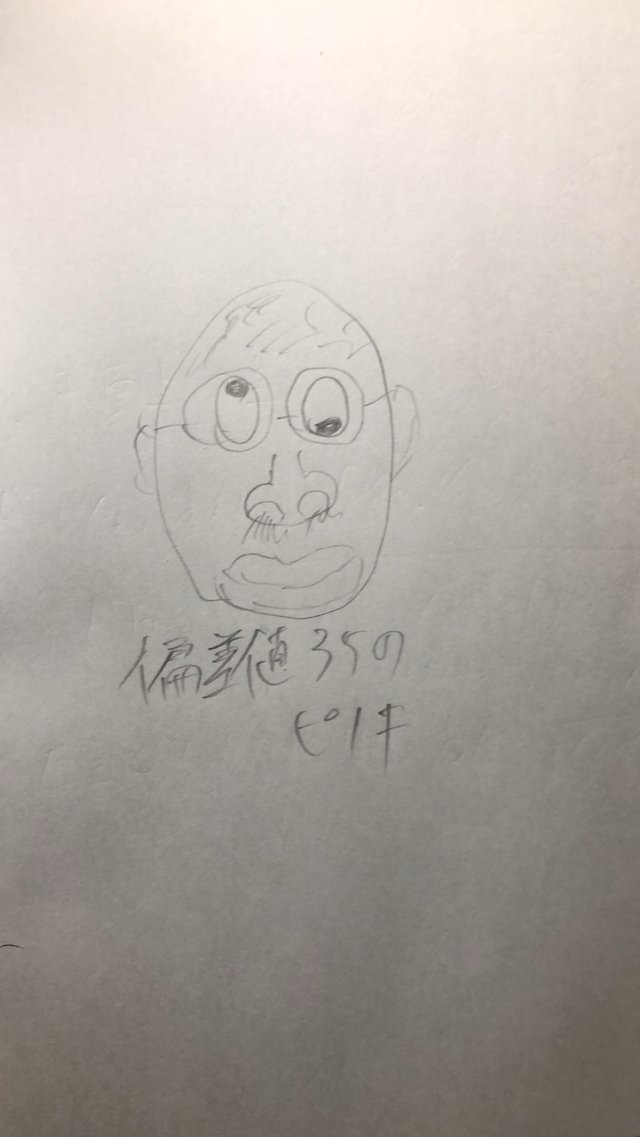 偏差値35の
ピノキ